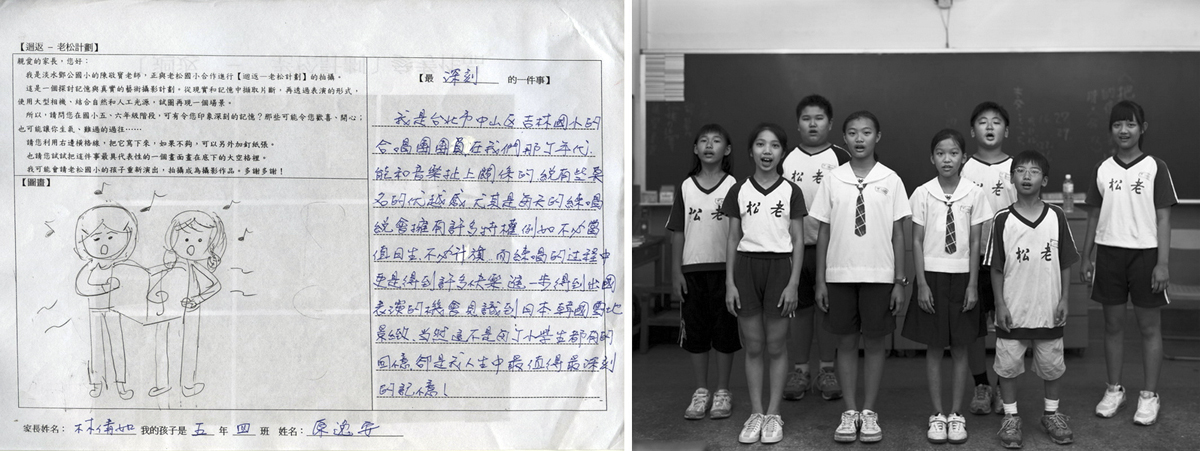 【迴返 – 老松計劃】
親愛的家長，您好：
我是淡水鄧公國小的陳敬寶老師，正與老松國小合作進行【迴返—老松計劃】的拍攝。
這是一個探討記憶與真實的藝術攝影計劃。從現實和記憶中擷取片斷，再透過表演的形式，
使用大型相機、結合自然和人工光源，試圖再現一個場景。
所以，請問您在國小五、六年級階段，可有令您印象深刻的記憶？那些可能令您歡喜、開心；
也可能讓你生氣、難過的過往……
請您利用右邊橫格線，把它寫下來，如果不夠，可以另外加釘紙張。
也請您試試把這件事最具代表性的一個畫面畫在底下的大空格裡。
我可能會請老松國小的孩子重新演出，拍攝成為攝影作品。多謝多謝！
【圖畫】
【最 深刻 的一件事】
我是台北市中山區吉林國小的
合唱團團員在我們那个年代，
能和音樂扯上關係的總有些莫
名的优越感尤其是每天的練唱
總會擁有許多特權例如不必當
值日生、不必升旗、而練唱的过程中
更是得到許多快樂進一步得到出國
表演的機會見識到日本韓國
景緻、當然這不是每个小學生都有的
回憶卻是我人生中最值得最深刻
的記憶！
家長姓名：林倩如 我的孩子是 五 年 四 班 姓名：原
老松
老松
老松
老松
老松
老松